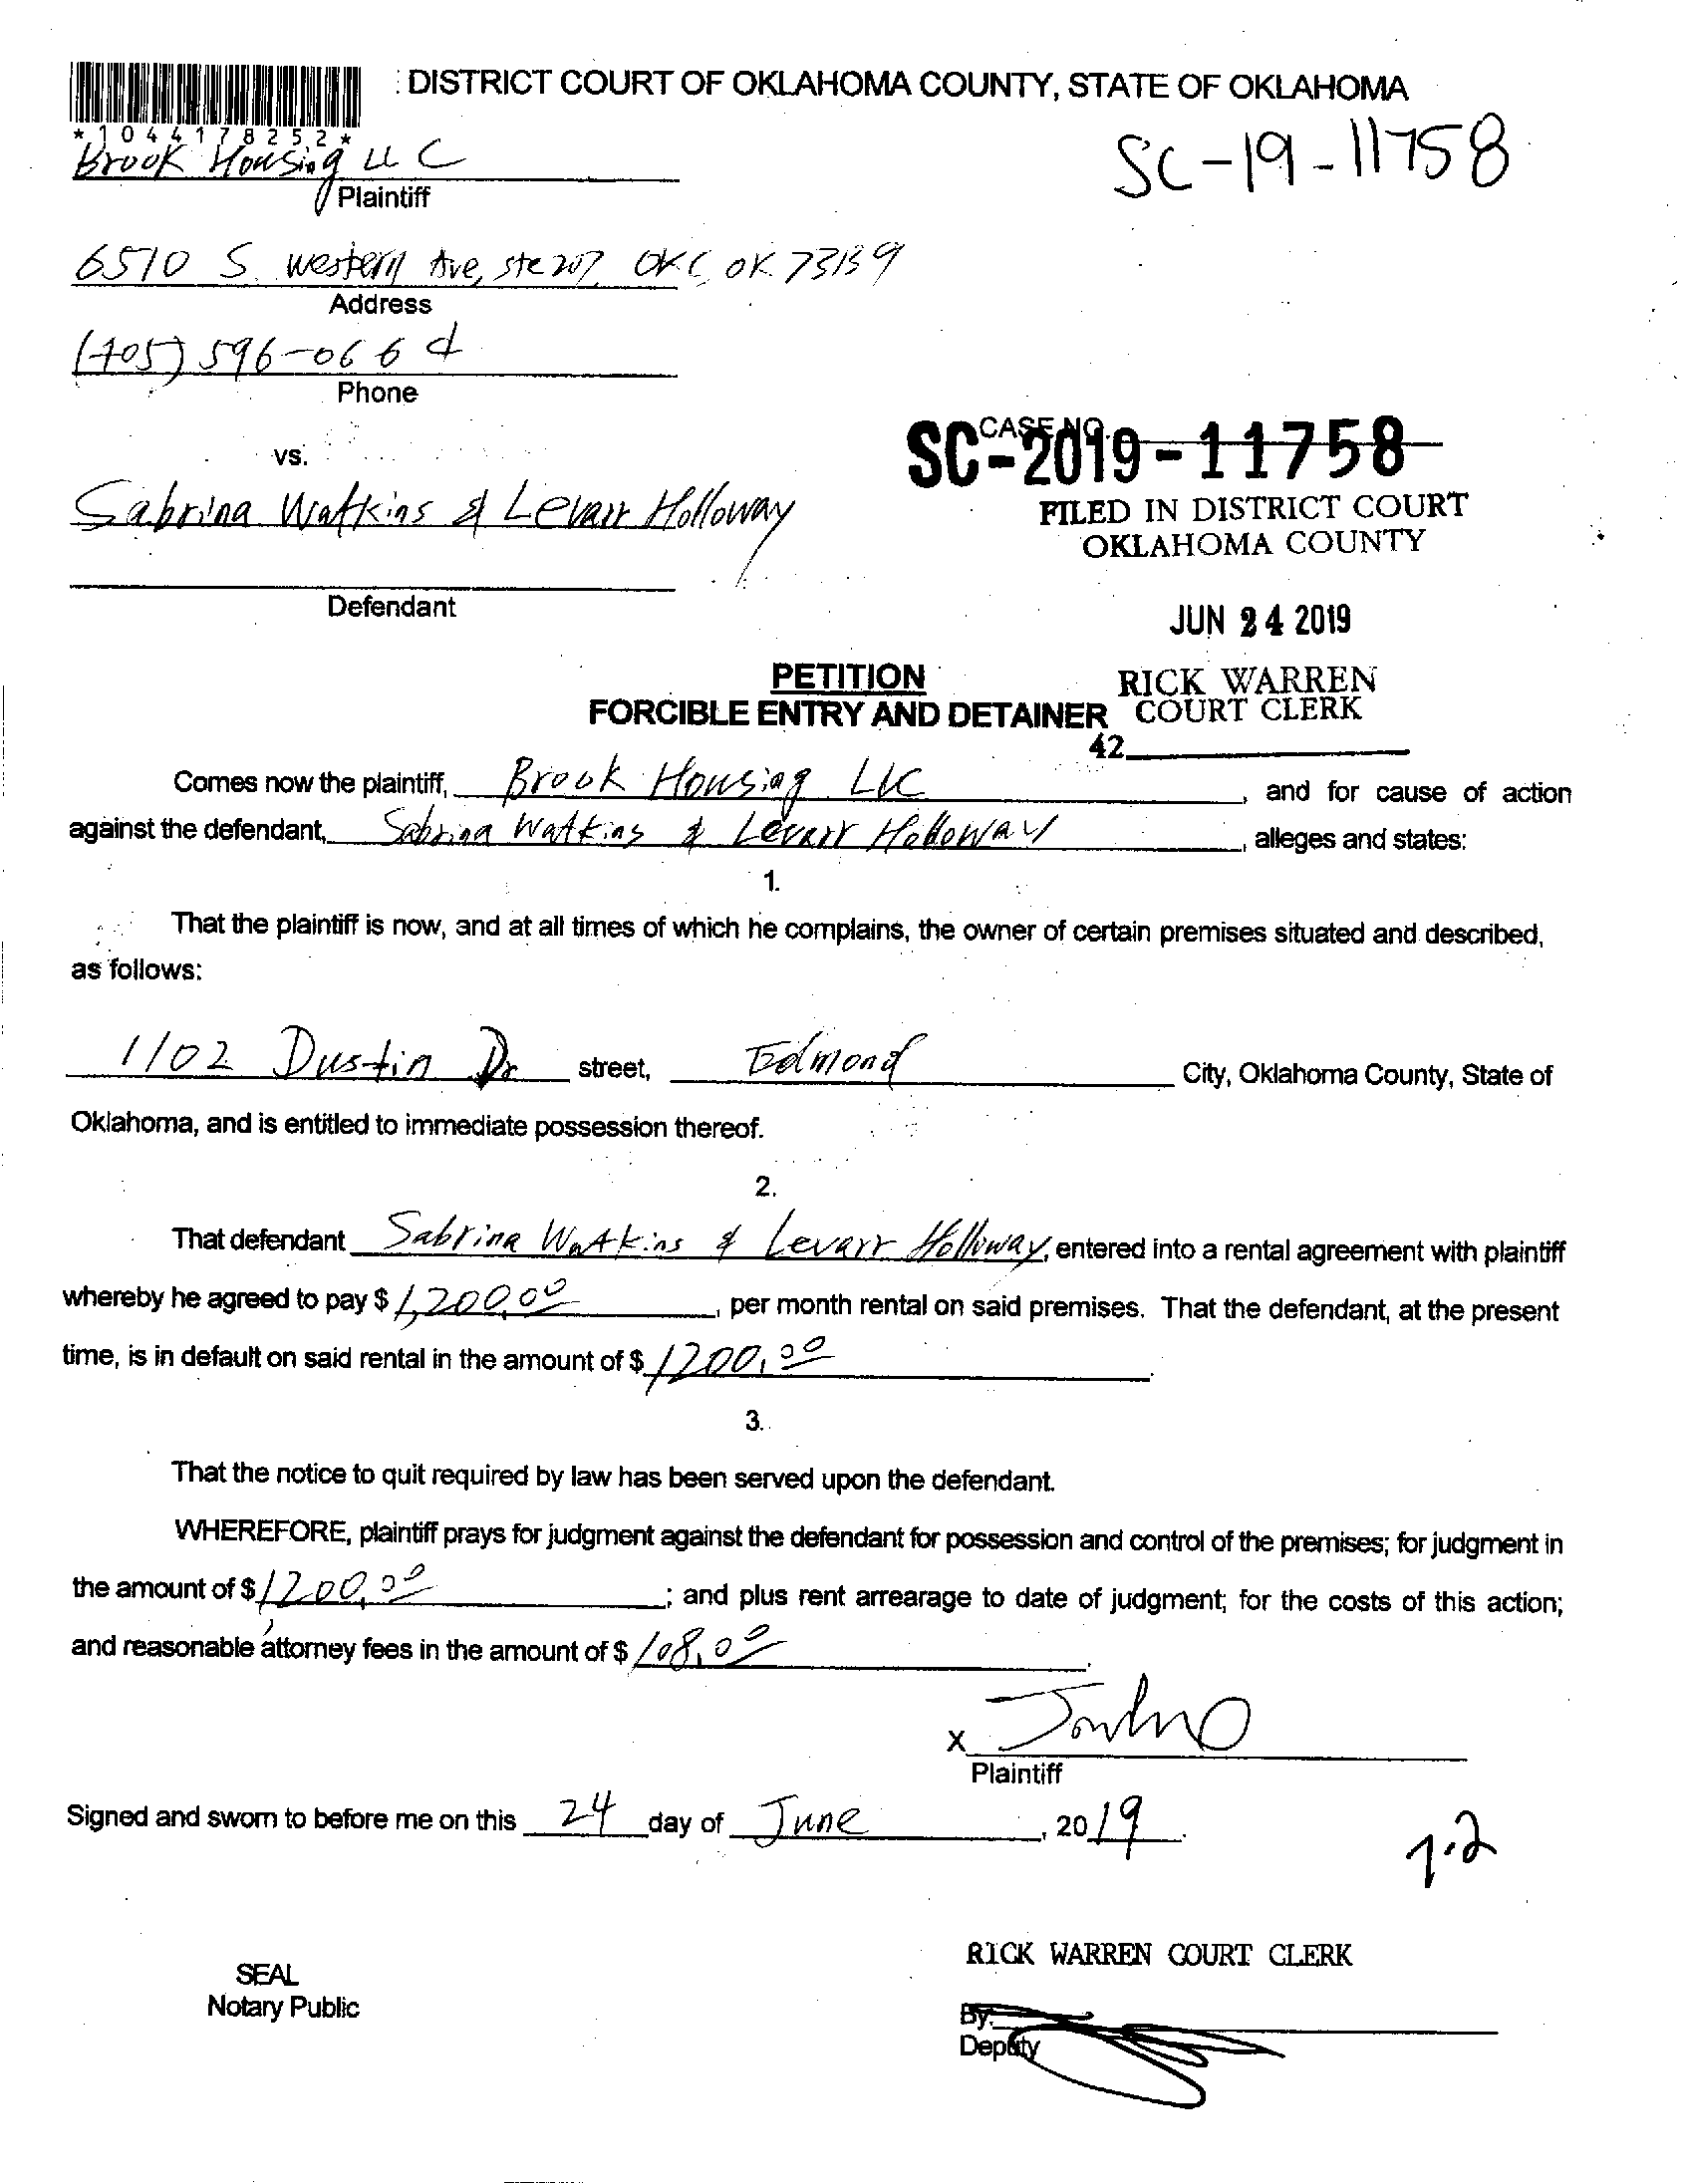 : DISTRICT COURT OF OKLAHOMA COUNTY, STATE OF OKLAHOMA
*1044178252*
Brook Housing LLC
SC-19-11758
Plaintiff
6510 S. Western Ave, ste 207, OKC, OK 73139
Address
(405) 596-0664
Phone
CASE NO.
SC-2019-11758
vs.
Sabrina Watkins & Levarr Holloway
FILED IN DISTRICT COURT
OKLAHOMA COUNTY
Defendant
JUN 24 2019
PETITION
RICK WARREN
FORCIBLE ENTRY AND DETAINER
COURT CLERK
42
Comes now the plaintiff, Brook Housing LLC, and for cause of action
against the defendant, Sabrina Watkins & Levarr Holloway, alleges and states:
1.
That the plaintiff is now, and at all times of which he complains, the owner of certain premises situated and described,
as follows:
1102 Dustin Dr street, Edmond City, Oklahoma County, State of
Oklahoma, and is entitled to immediate possession thereof.
2.
That defendant Sabrina Watkins & Levarr Holloway, entered into a rental agreement with plaintiff
whereby he agreed to pay $ 1,200.00, per month rental on said premises. That the defendant, at the present
time, is in default on said rental in the amount of $ 1200.00.
3.
That the notice to quit required by law has been served upon the defendant.
WHEREFORE, plaintiff prays for judgment against the defendant for possession and control of the premises; for judgment in
the amount of $ 1200.00; and plus rent arrearage to date of judgment; for the costs of this action;
and reasonable attorney fees in the amount of $ 108.00.
X
Plaintiff
Signed and sworn to before me on this 24 day of June, 2019.
7.2
RICK WARREN COURT CLERK
SEAL
Notary Public
By:
Deputy